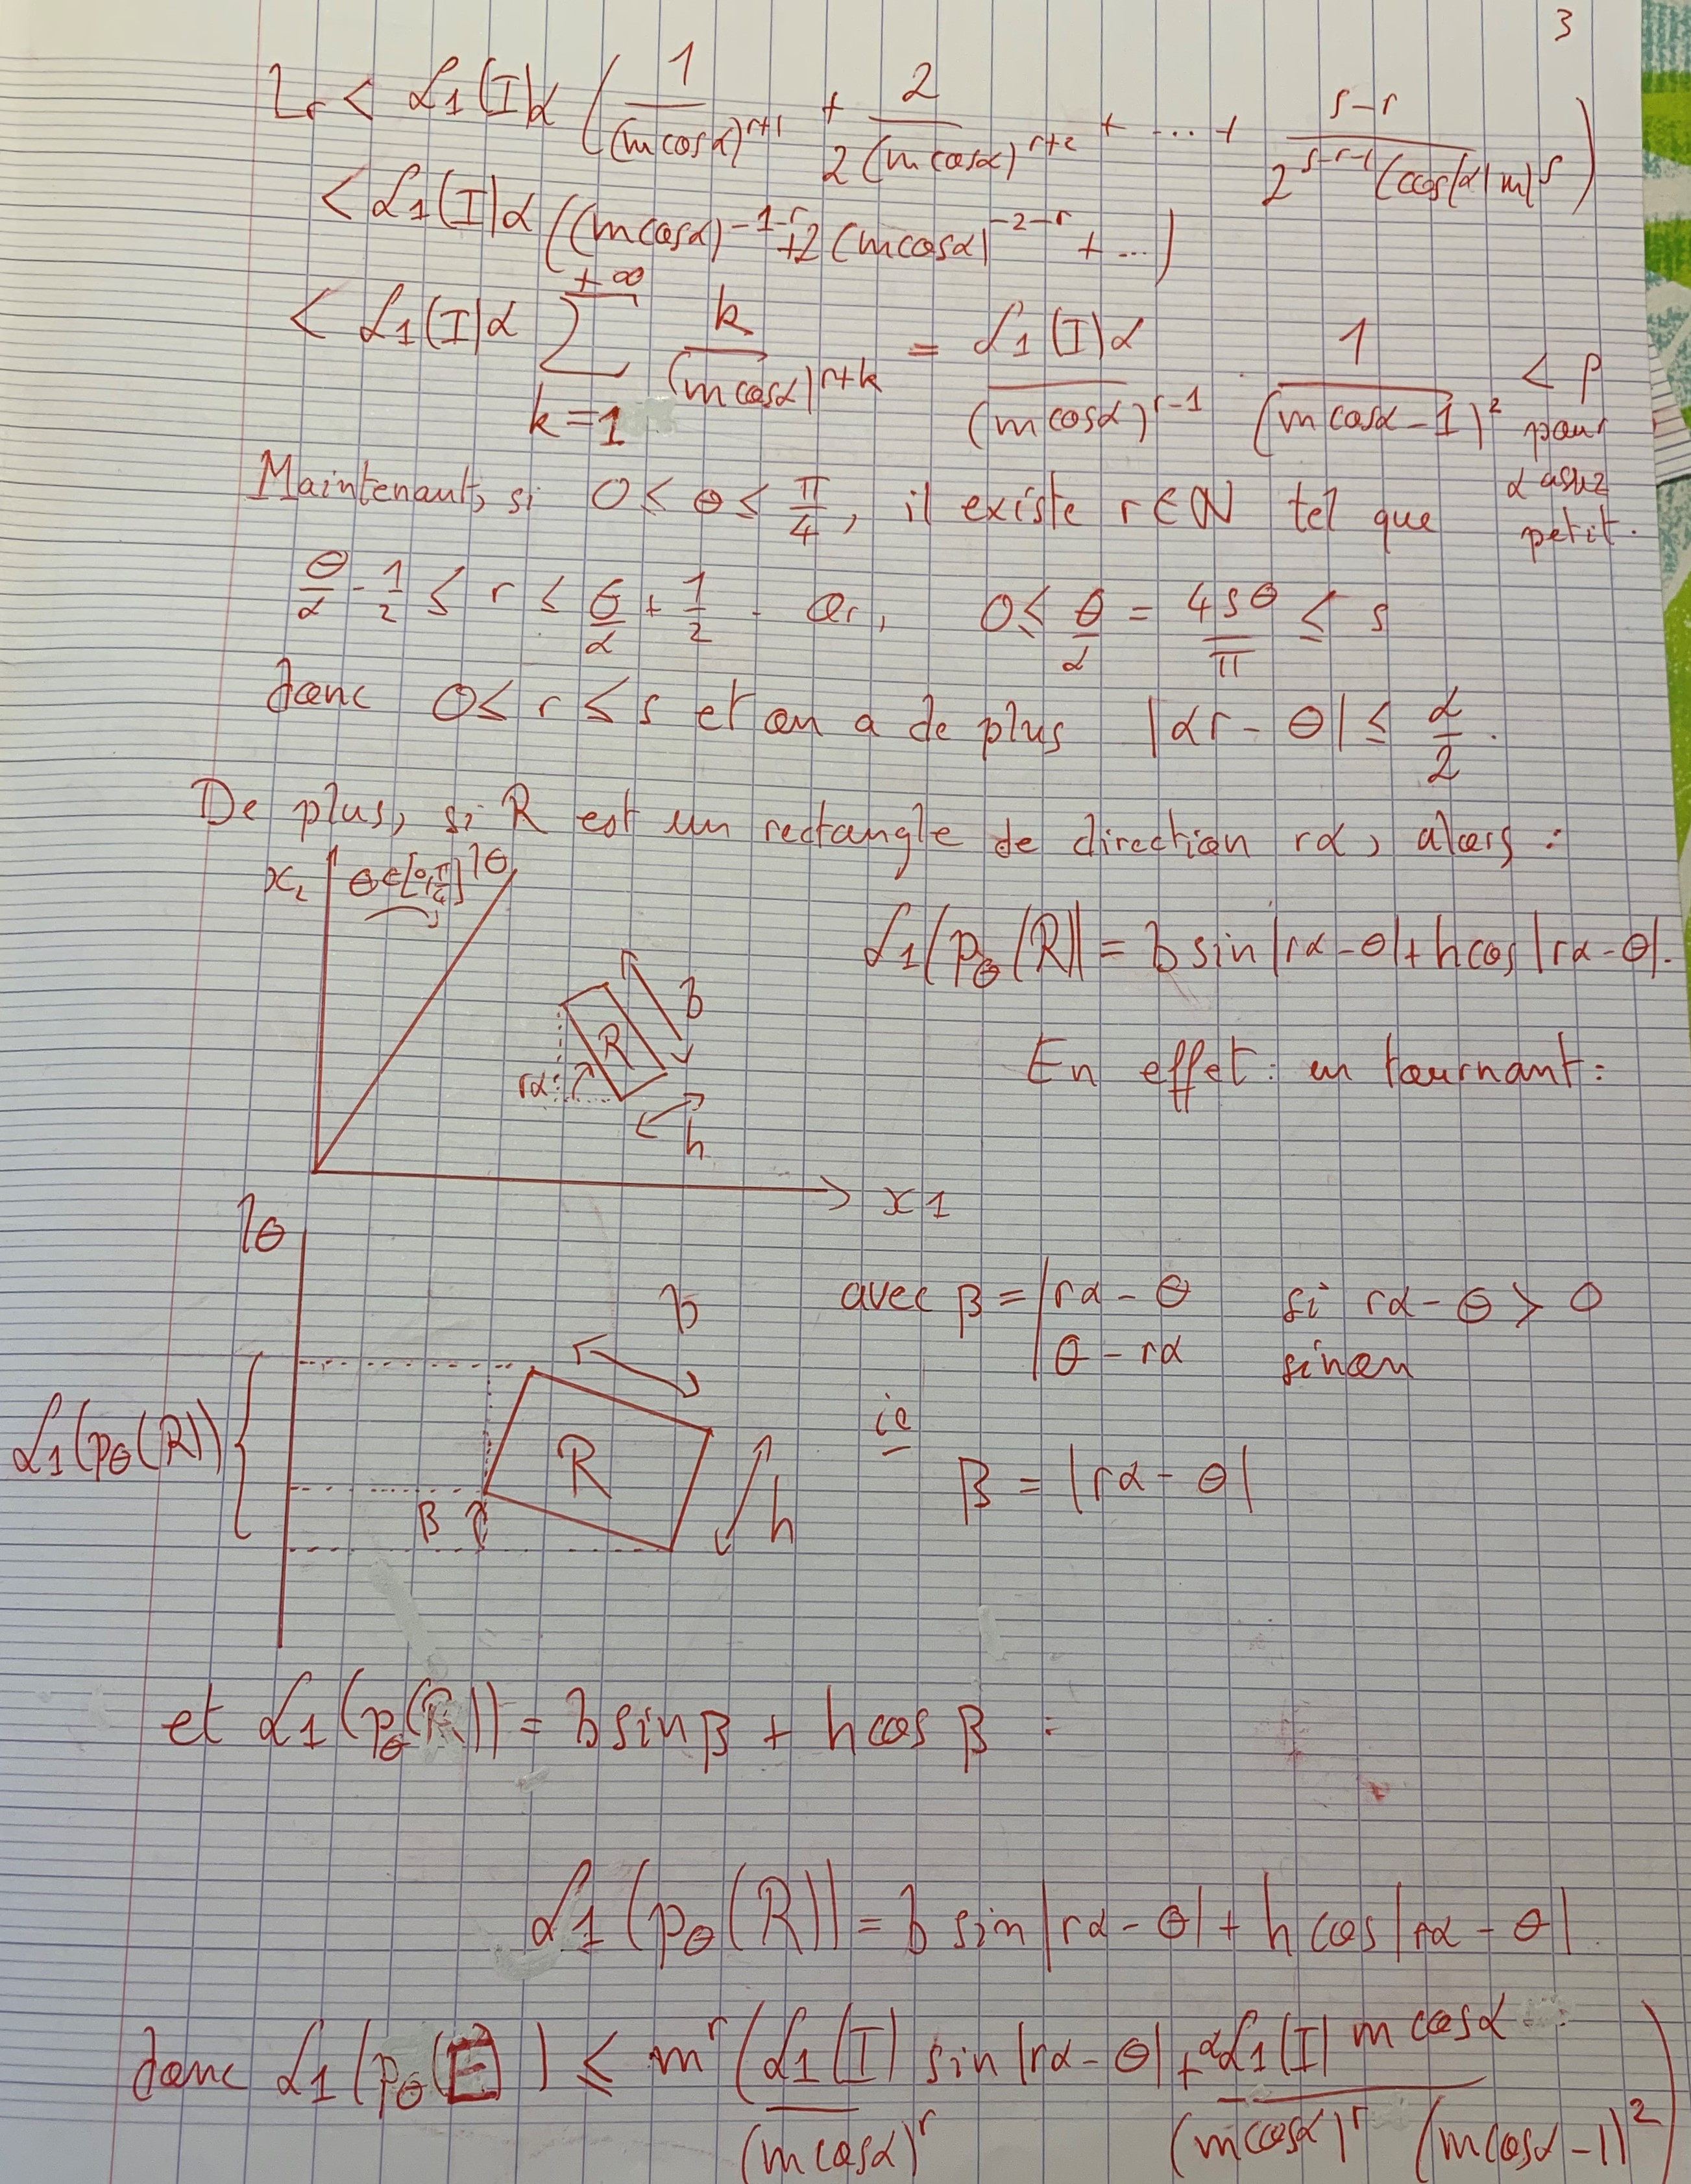 3
L_r < ℒ1(I)α ( 1/(m cosα)^{r+1} + 2/2(m cosα)^{r+2} + ... + s-r/2^{s-r-1}(cos(α)m)^s )
< ℒ1(I)α ((m cosα)^{-1-r} + 2(m cosα)^{-2-r} + ...)
< ℒ1(I)α ∑_{k=1}^{+∞} k/(m cosα)^{r+k} = ℒ1(I)α/(m cosα)^{r-1} . 1/(m cosα-1)^2 < ρ pour α assez petit.
Maintenant, si 0 ≤ θ ≤ π/4, il existe r∈ℕ tel que
θ/α - 1/2 ≤ r ≤ θ/α + 1/2. Or, 0 ≤ θ/α = 4sθ/π ≤ s
donc 0 ≤ r ≤ s et on a de plus |αr - θ| ≤ α/2.
De plus, si R est un rectangle de direction rα, alors :
x_2 θ∈[0,π/4] lθ
ℒ1(p_θ(R)) = b sin|rα-θ| + h cos|rα-θ|.
b
R
rα
h
En effet : en tournant :
x1
lθ
b
avec β = | rα - θ si rα - θ > 0
| θ - rα sinon
ℒ1(p_θ(R))
R
ie
β = |rα - θ|
β
h
et ℒ1(p_θ(R)) = b sin β + h cos β :
ℒ1(p_θ(R)) = b sin|rα - θ| + h cos|rα - θ|.
donc ℒ1(p_θ(E)) ≤ m^r ( ℒ1(I)/(m cosα)^r sin|rα - θ| + αℒ1(I) m cosα/(m cosα)^r (m cosα - 1)^2 )